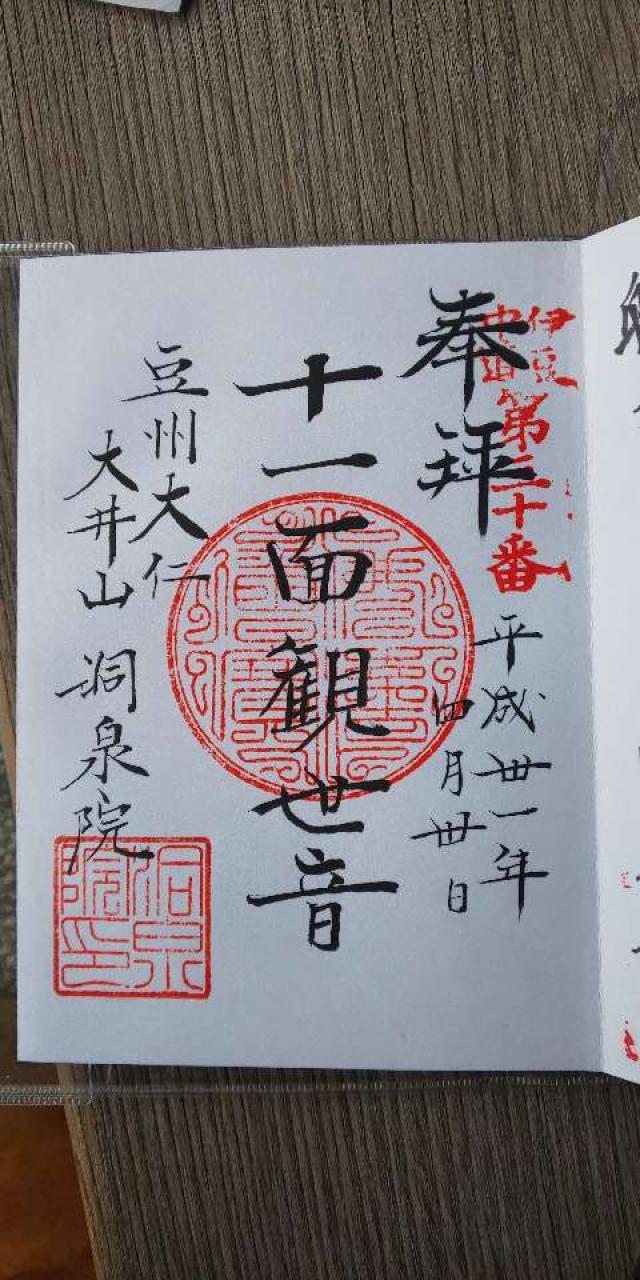 伊豆
中道
奉拝
平成丗一年
四月丗日
十一面観世音
豆州大仁
大井山 洞泉院
洞泉
院印